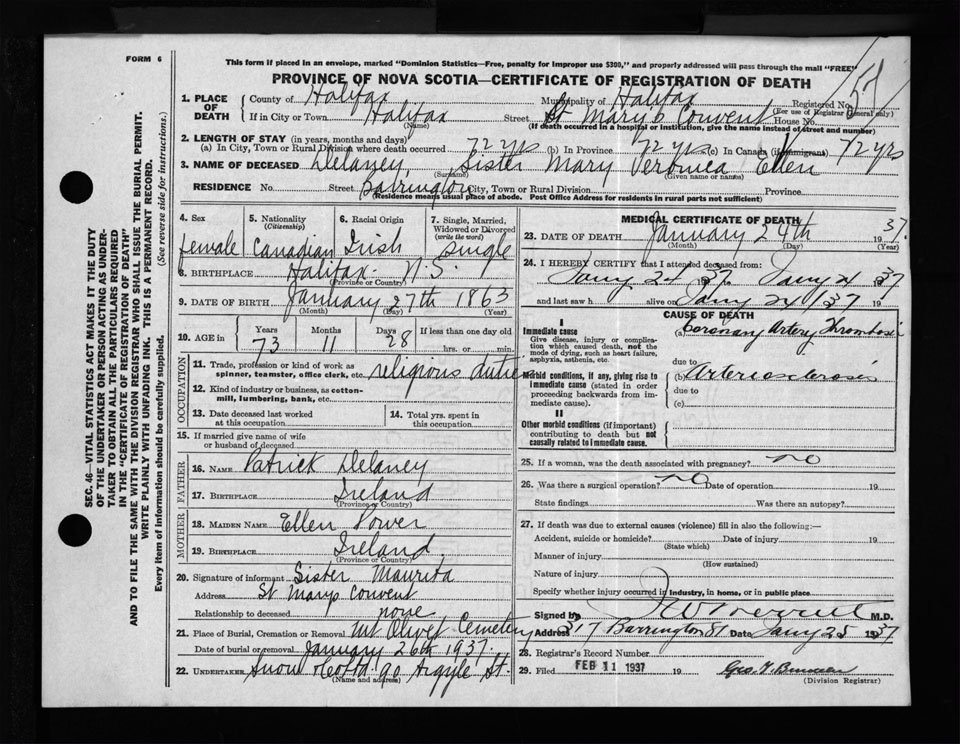 FORM 6
This form if placed in an envelope, marked "Dominion Statistics—Free, penalty for improper use $300," and properly addressed will pass through the mail "FREE"
PROVINCE OF NOVA SCOTIA—CERTIFICATE OF REGISTRATION OF DEATH
1. PLACE OF DEATH
County of Halifax Municipality of Halifax Registered No.
(For use of Registrar General only)
If in City or Town Halifax Street St Mary's Convent House No.
(Name) (If death occurred in a hospital or institution, give the name instead of street and number)
2. LENGTH OF STAY (in years, months and days)
(a) In City, Town or Rural Division where death occurred 72 yrs (b) In Province 72 yrs (c) In Canada (if immigrant) 72 yrs
3. NAME OF DECEASED Delaney, Sister Mary Veronica Ellen
(Surname) (Given name or names)
RESIDENCE No. Street Barrington City, Town or Rural Division Province
(Residence means usual place of abode. Post Office Address for residents in rural parts not sufficient)
4. Sex
female
5. Nationality (Citizenship)
Canadian
6. Racial Origin
Irish
7. Single, Married, Widowed or Divorced (write the word)
single
8. BIRTHPLACE Halifax - N.S.
(Province or Country)
9. DATE OF BIRTH January 27th 1863
(Month) (Day) (Year)
10. AGE in
Years 73
Months 11
Days 28
If less than one day old
hrs. or min.
OCCUPATION
11. Trade, profession or kind of work as spinner, teamster, office clerk, etc. religious duties
12. Kind of industry or business, as cotton-mill, lumbering, bank, etc.
13. Date deceased last worked at this occupation
14. Total yrs. spent in this occupation
15. If married give name of wife or husband of deceased
FATHER
16. NAME Patrick Delaney
17. BIRTHPLACE Ireland
(Province or Country)
MOTHER
18. MAIDEN NAME Ellen Power
19. BIRTHPLACE Ireland
(Province or Country)
20. Signature of informant Sister Maurita
Address St Marys Convent
Relationship to deceased none
21. Place of Burial, Cremation or Removal Mt Olivet Cemetery
Date of burial or removal January 26th 1937.
22. UNDERTAKER Snow 90 Argyle St.
(Name and address)
MEDICAL CERTIFICATE OF DEATH
23. DATE OF DEATH January 24th 1937.
(Month) (Day) (Year)
24. I HEREBY CERTIFY that I attended deceased from:
Jany 24 37 Jany 24 1937
and last saw h alive on Jany 24/37 19
CAUSE OF DEATH
I
Immediate cause
Give disease, injury or complication which caused death, not the mode of dying, such as heart failure, asphyxia, asthenia, etc.
(a) Coronary Artery Thrombosis
due to
Morbid conditions, if any, giving rise to immediate cause (stated in order proceeding backwards from immediate cause).
(b) Arteriosclerosis
due to
(c)
II
Other morbid conditions (if important) contributing to death but not causally related to immediate cause.
25. If a woman, was the death associated with pregnancy? no
26. Was there a surgical operation? no Date of operation 19
State findings Was there an autopsy?
27. If death was due to external causes (violence) fill in also the following:—
Accident, suicide or homicide? Date of injury 19
(State which)
Manner of injury
(How sustained)
Nature of injury
Specify whether injury occurred in industry, in home, or in public place
Signed by M.D.
Address 317 Barrington St Date Jany 25 1937
28. Registrar's Record Number
29. Filed FEB 11 1937 19
(Division Registrar)
SEC. 46—VITAL STATISTICS ACT MAKES IT THE DUTY
OF THE UNDERTAKER OR PERSON ACTING AS UNDER-
TAKER TO OBTAIN ALL THE PARTICULARS REQUIRED
IN THE "CERTIFICATE OF REGISTRATION OF DEATH"
AND TO FILE THE SAME WITH THE DIVISION REGISTRAR WHO SHALL ISSUE THE BURIAL PERMIT.
WRITE PLAINLY WITH UNFADING INK. THIS IS A PERMANENT RECORD.
Every item of information should be carefully supplied. (See reverse side for instructions.)